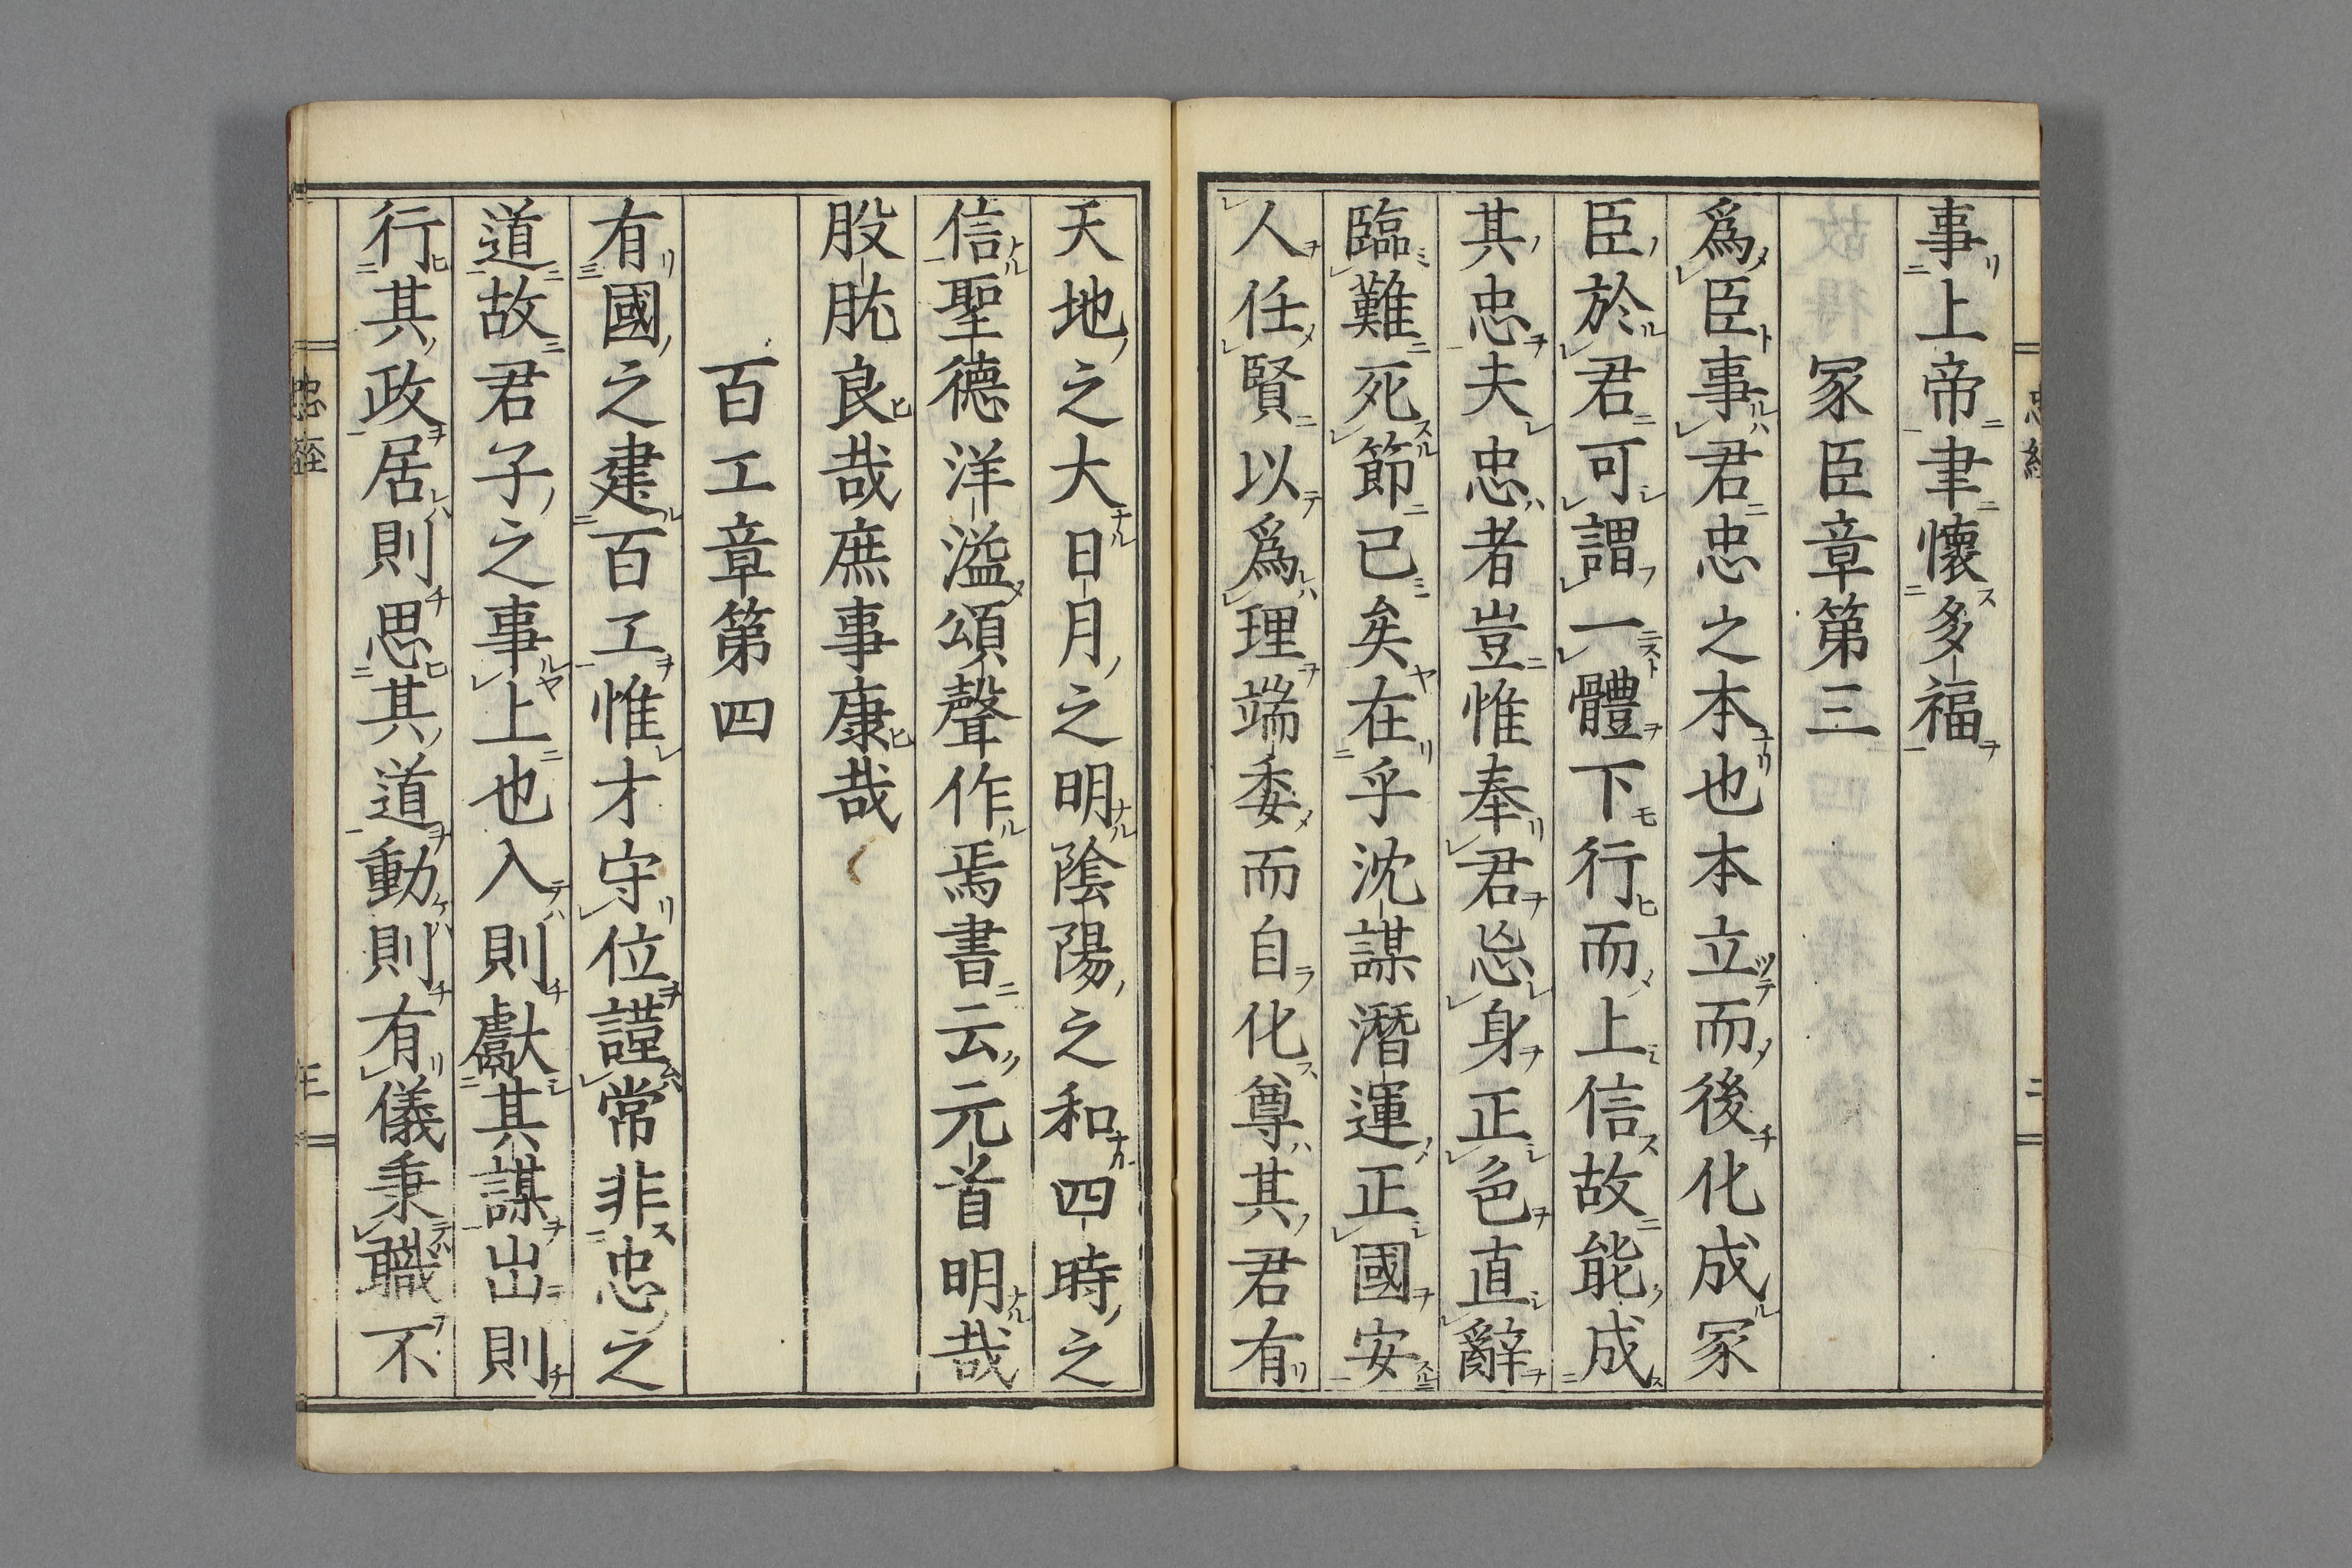 事上帝聿懷多福
冢臣章第三
爲臣事君忠之本也本立而後化成冢
臣於君可謂一體下行而上信故能成
其忠夫忠者豈惟奉君忘身正色直辭
臨難死節已矣在乎沈謀潛運正國安
人任賢以爲理端委而自化尊其君有
天地之大日月之明陰陽之和四時之
信聖德洋溢頌聲作焉書云元首明哉
股肱良哉庶事康哉
百工章第四
有國之建百工惟才守位謹常非忠之
道故君子之事上也入則獻其謀出則
行其政居則思其道動則有儀秉職不
忠經